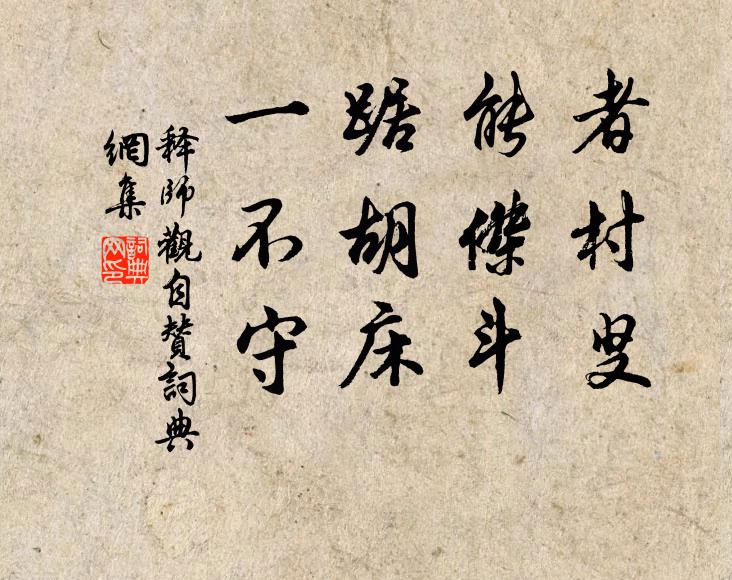 者村叟
能傑斗
踞胡床
一不守
释師觀自赞詞典
網集
詞典网印